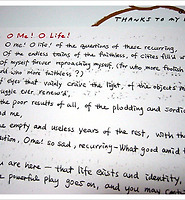 THANKS TO MY
O Me! O Life!
O me! O life! of the questions of these recurring,
Of the endless trains of the faithless, of cities fill
of myself forever reproaching myself, (for who more
and who more faithless?)
eyes that vainly crave the light, of the objects
ruggle ever renew'd,
the poor results of all, of the plodding and sordid
nd me,
he empty and useless years of the rest, with the
stion, O me! so sad, recurring—What good amid t
ou are here — that life exists and identity,
he powerful play goes on, and you may cont